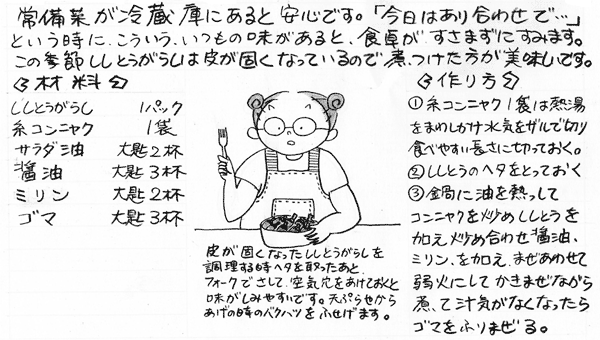 常備菜が冷蔵庫にあると安心です。「今日はあり合わせで…」
という時に、こういう、いつもの味があると、食卓が、すさまずにすみます。
この季節ししとうがらしは皮が固くなっているので煮つけた方が美味しいです。
材料
ししとうがらし 1パック
糸コンニャク 1袋
サラダ油 大匙2杯
醤油 大匙3杯
ミリン 大匙2杯
ゴマ 大匙3杯
皮が固くなったししとうがらしを
調理する時ヘタを取ったあと、
フォークでさして、空気穴をあけておくと
味がしみやすいです。天ぷらせから
あげの時のバクハツをふせげます。
作り方
①糸コンニャク1袋は熱湯
をまわしかけ水気をザルで切り
食べやすい長さに切っておく。
②ししとうのヘタをとっておく
③鍋に油を熱っして
コンニャクを炒めししとうを
加え炒め合わせ醤油、
ミリン、を加え、まぜあわせて
弱火にしてかきまぜながら
煮て汁気がなくなったら
ゴマをふりまぜる。